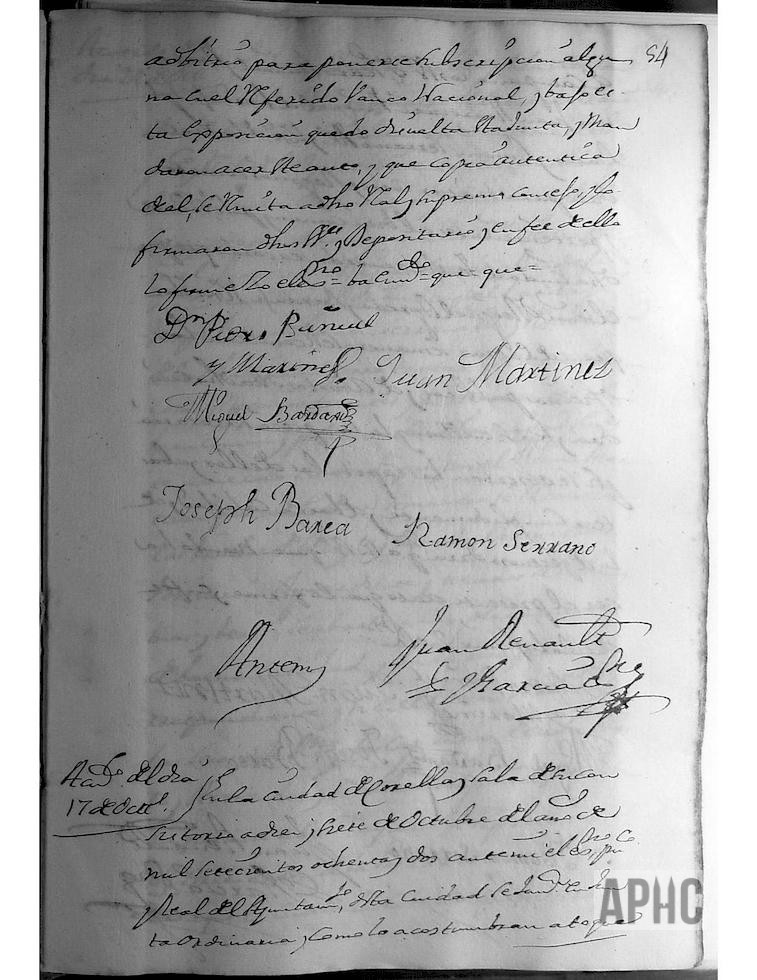 adbitrio para ponerce subscripcion algu 54
na en el Referido Vanco Nacional, y bajo es-
ta Exposicion quedo disuelta la Junta, y Man
daron acer este auto, y que copia autentica
de el, se Remita a dho Rl y Supremo Consejo, y lo
firmaron dhos SSes y Depositario, y en fee de ello
lo firme Yo el Ssno = que = que =
Dn Pedro Buñuel
y Martinez. Juan Martinez
Miguel
Joseph Barea Ramon Serrano
Antemi Juan Renault
y Garcia Ssno
Acdo. del dia
17 de Octe.
En la Ciudad de Corella y Sala de su Con
sistorio a diez y siete de Octubre del año de
mil setecientos ochenta y dos ante mi el Ssno puco
y Real del Ayuntamto de esta Ciudad se Jun en Jun
ta ordinaria, como lo acostumbran a toque
APHC